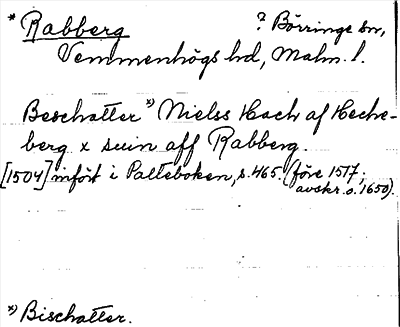 * Rabberg ? Börringe sn,
Vemmenhögs hd, Malm. l.
Beschatter *) Nielss Hach af Heche-
berg x suin aff Rabberg.
[1504] infört i Palteboken, s. 465. (före 1517;
avskr. o. 1650).
*) Bischatter.